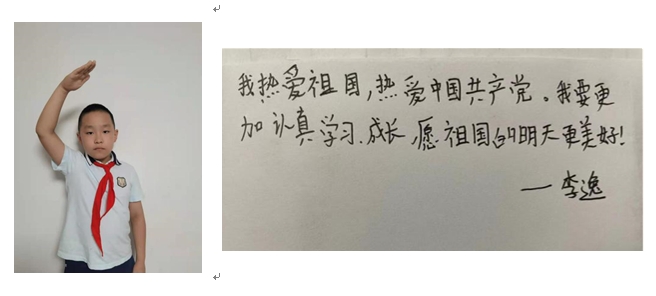 我热爱祖国,热爱中国共产党。我要更
加认真学习.成长,愿祖国的明天更美好!
——李逸